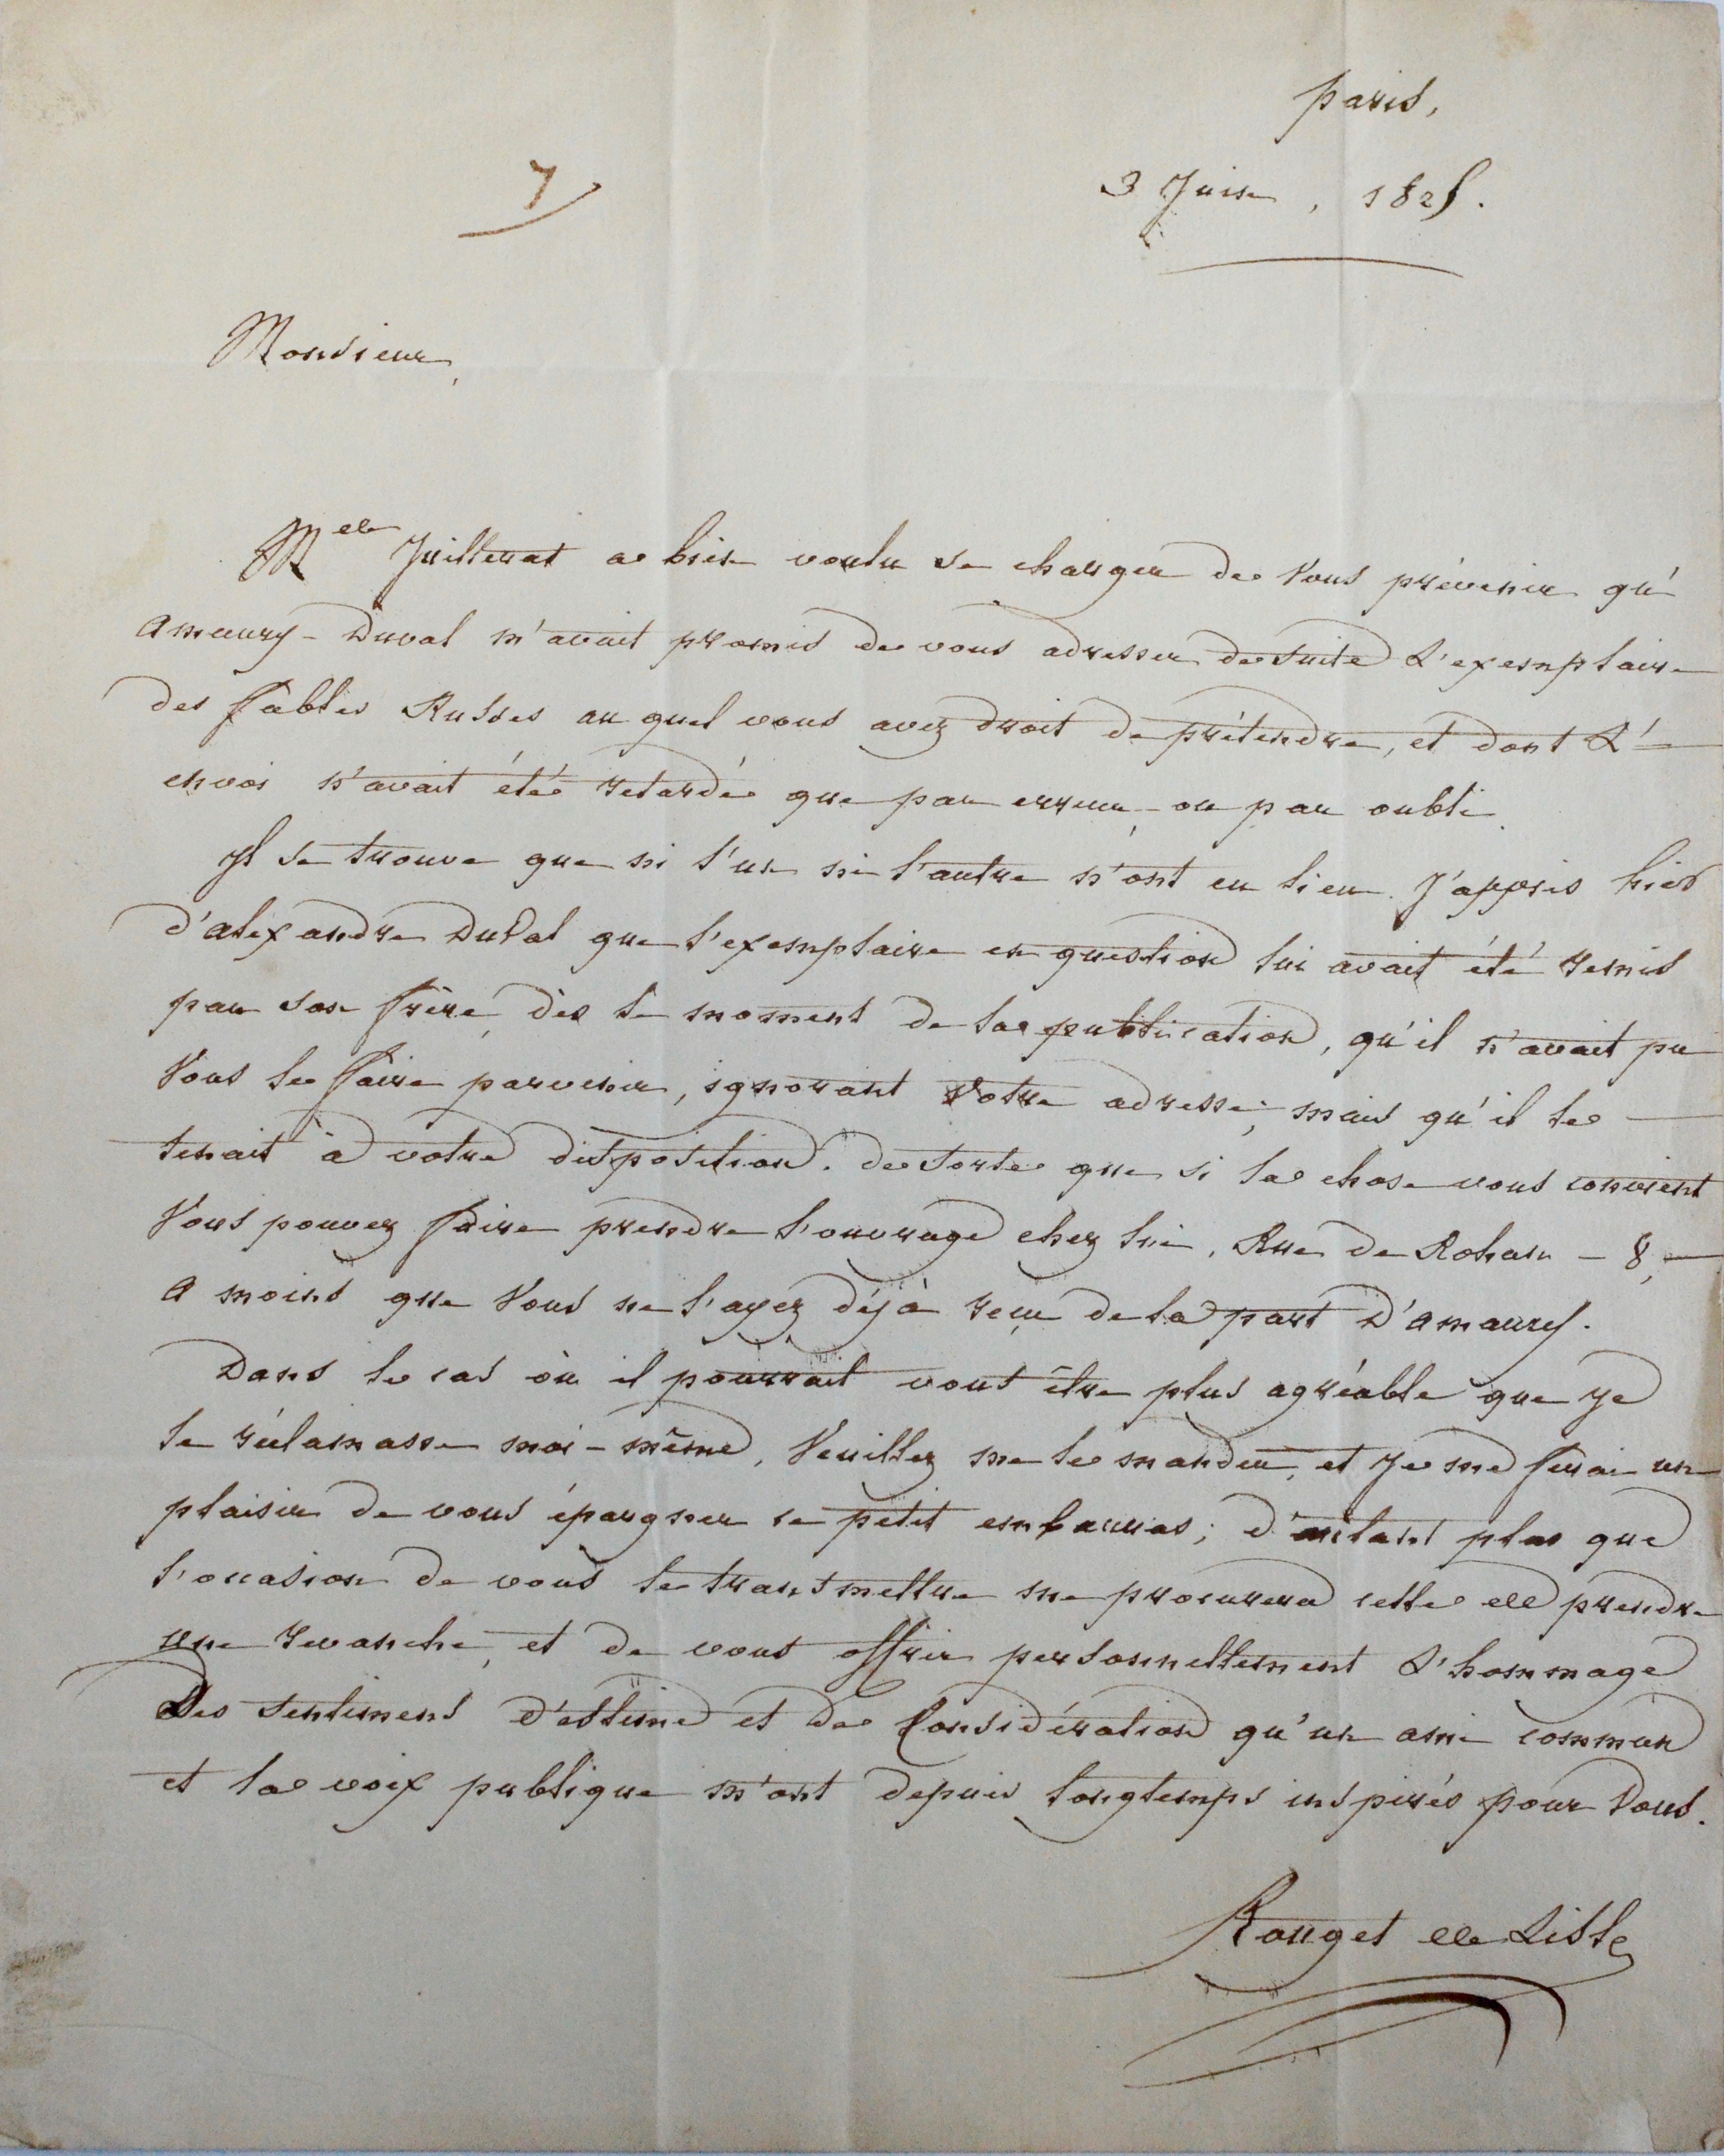 Paris,
3 Juin, 1825.
7
Monsieur,
Melle Juillerat a bien voulu se charger de Vous prévenir qu'
Amaury-Duval m'avait promis de vous adresser de suite L'exemplaire
des fables Russes auquel vous avez droit de prétendre, et dont L'=
envoi n'avait été retardé que par erreur, ou par oubli.
Il se trouve que ni l'un ni l'autre n'ont eu lieu. J'appris hier
d'alexandre Duval que l'exemplaire en question lui avait été remis
par son frère, dès le moment de la publication, qu'il n'avait pu
Vous le faire parvenir, ignorant Votre adresse, mais qu'il le
tenait à votre disposition. de sorte que si la chose vous convient
Vous pouvez faire prendre l'ouvrage chez lui, Rue de Rohan - 8, -
A moins que Vous ne l'ayez déjà reçu de la part D'amaury.
Dans le cas où il pourrait vous être plus agréable que je
le réclamasse moi-même, Veuillez me le mander, et je me ferai un
plaisir de vous épargner ce petit embarras; d'autant plus que
l'occasion de vous le transmettre me procurera celle de prendre
une revanche, et de vous offrir personnellement L'hommage
Des sentimens d'estime et de Considération qu'un ami commun
et la voix publique m'ont depuis longtemps inspirés pour Vous.
Rouget de Lisle